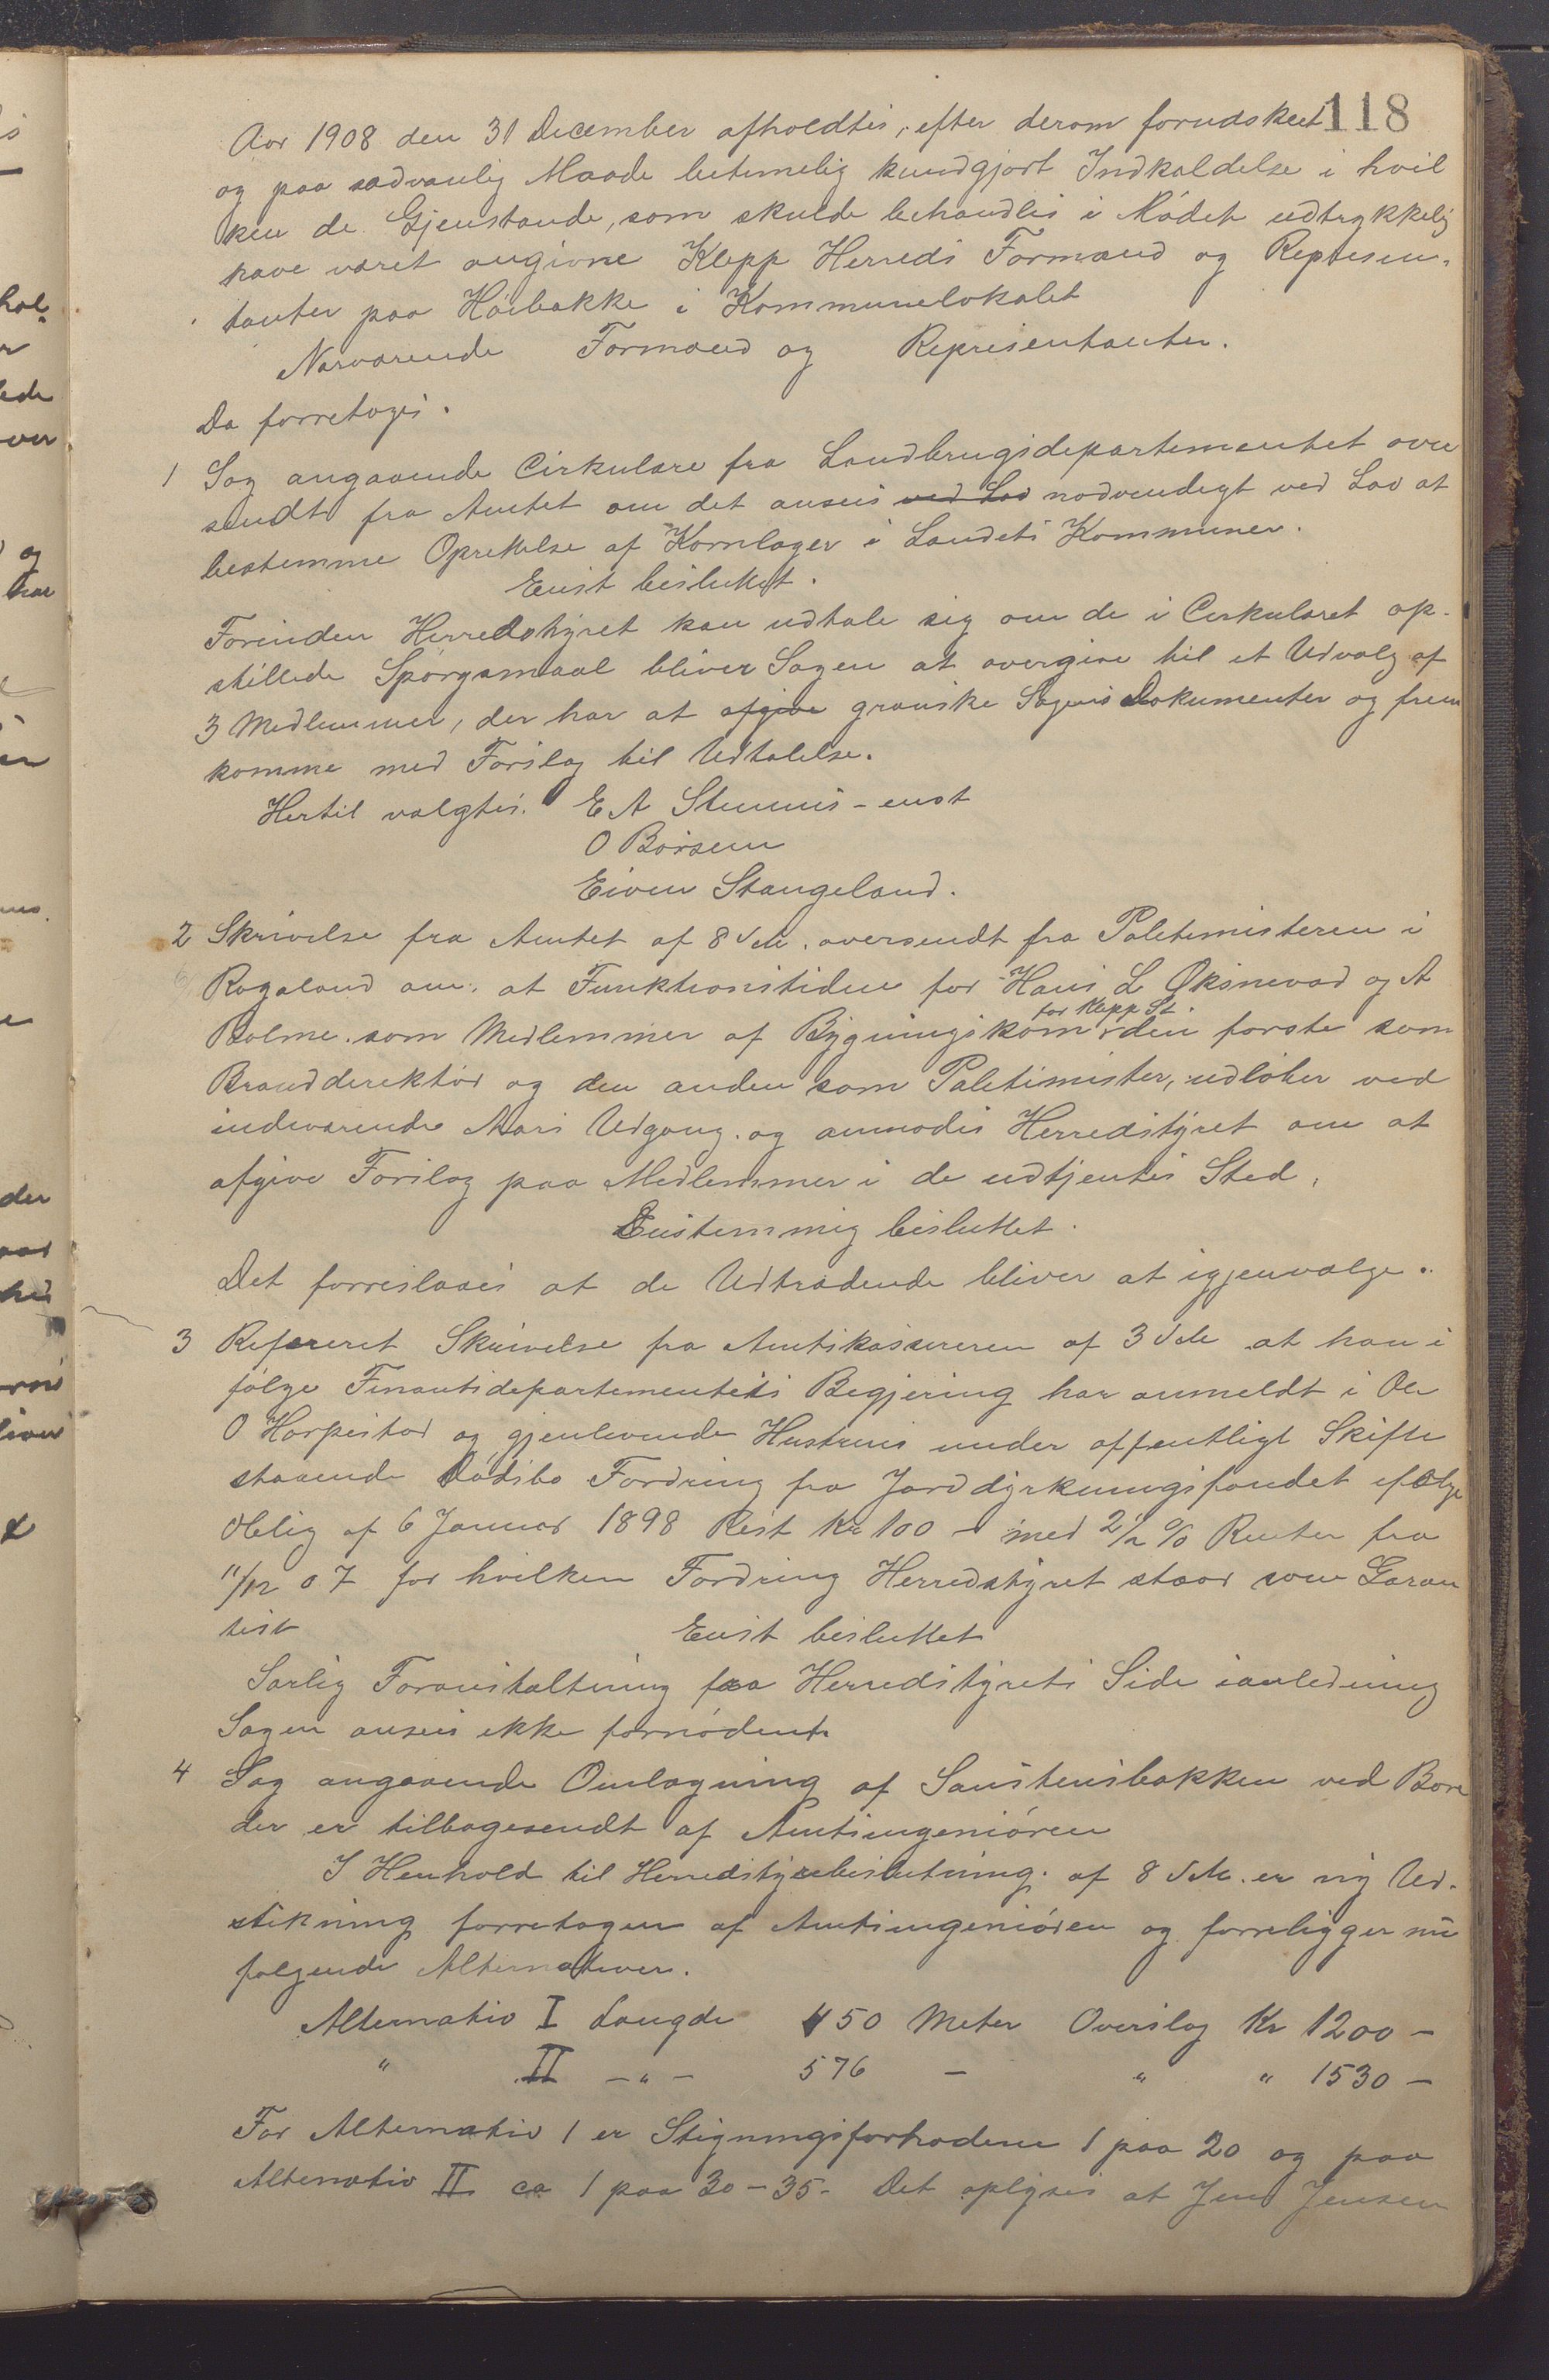 118
Aar 1908 den 31 December afholdtes, efter derom forudskeet
og paa sædvanlig Maade betimelig kundgjort Indkaldelse i hvil
ken de Gjenstande, som skulde behandles i Mødet udtrykkelig
have været angivne Klepp Herreds Formænd og Represen-
tanter paa Høibakke i Kommunelokalet
Nærværende Formænd og Representanter.
Da forretoges.
1 Sag angaaende Cirkulære fra Landbrugsdepartementet over
sendt fra Amtet om det ansees ved Lov nødvendigt ved Lov at
bestemme Oprettelse af Kornlager i Landets Kommuner.
Enst besluttet.
Forinden Herredstyret kan udtale sig om de i Cirkulæret op-
stillede Spørgsmaal bliver Sagen at overgive til et Udvalg af
3 Medlemmer, der har at afgive granske Sagens Dokumenter og frem
komme med Forslag til Udtalelse.
Hertil valgtes. E A Stennes - enst
O Børsem
Eiven Stangeland.
2 Skrivelse fra Amtet af 8 d.M. oversendt fra Politimesteren i
Rogaland om, at Funktionstiden for Hans L Øksnevad og A
Bolme som Medlemmer af Bygningskom for Klepp St. den første som
Branddirektør og den anden som Politimester, udløber ved
indeværende Aars Udgang. og anmodes Herredstyret om at
afgive Forslag paa Medlemmer i de udtjentes Sted.
Enstemmig besluttet.
Det forreslaaes at de Udtrædende bliver at igjenvælge.
3 Refereret Skrivelse fra Amtskassereren af 3 d.M at han i
følge Finantsdepartementets Begjering har anmeldt i Ole
O Horpestad og gjenlevende Hustrues under offentligt Skifte
staaende Dødsbo Fordring fra Jorddyrkningsfondet ifølge
Oblig af 6 Januar 1898 Rest Kr 100 - med 2½ % Renter fra
11/12 07 for hvilken Fordring Herredstyret staar som Garan
tist Enst besluttet
Særlig Foranstaltning fra Herredstyrets Side ianledning
Sagen ansees ikke fornødent
4 Sag angaaende Omlægning af Sanstensbakken ved Bore
der er tilbagesendt af Amtsingeniøren
I Henhold til Herredstyrebeslutning. af 8 d.M. er ny Ud-
stikning forretagen af Amtsingeniøren og forreligger nu
følgende Alternativer.
Alternativ I Længde 450 Meter Overslag Kr 1200 -
" II -"- 576 - " " 1530 -
For Alternativ 1 er Stigningsforholdene 1 paa 20 og paa
Alternativ II ca 1 paa 30-35- Det oplyses at Jens Jensen